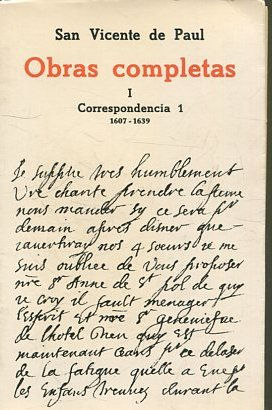 San Vicente de Paul
Obras completas
I
Correspondencia 1
1607 - 1639
Je supplie tres humblement
Vre charite prendre la peine
nous mander sy ce sera pr
demain apres disner que
nos 4 soeurs je me
suis oubliee de vous proposer
nre Sr Anne de St pol de qui
je croy il fault menager
l'esprit Et nre Sr geneviefve
de lhotel Dieu qui Est
maintenant ceans pr ce delaser
de la fatigue quelle a
les Enfans durant la